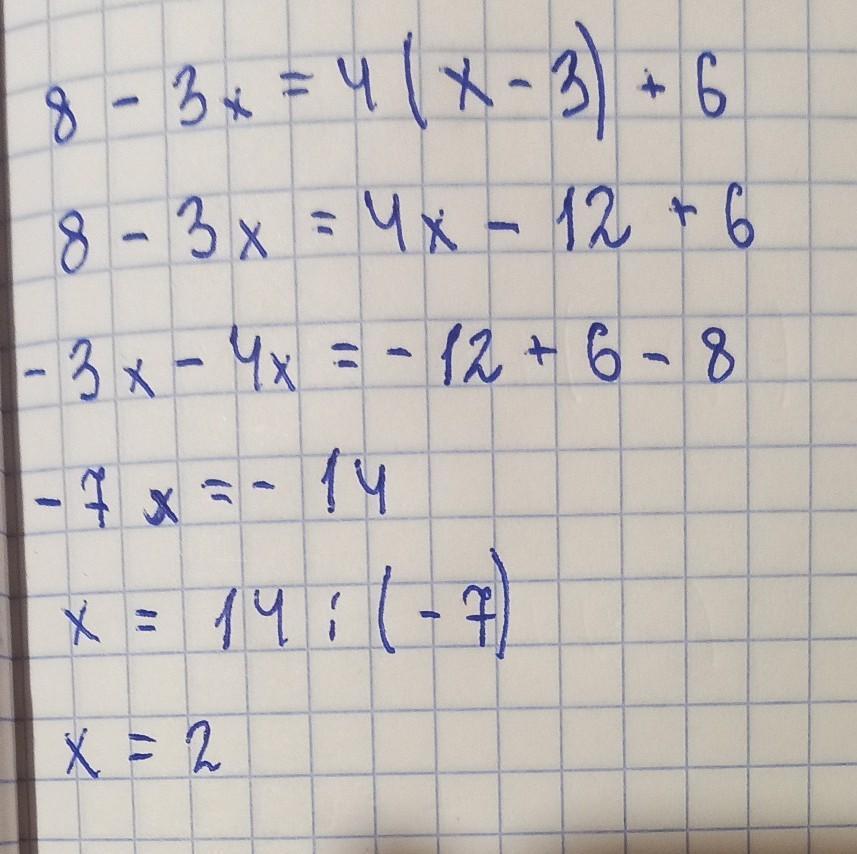 8 - 3x = 4(x - 3) + 6
8 - 3x = 4x - 12 + 6
-3x - 4x = -12 + 6 - 8
-7x = -14
x = 14 : (-7)
x = 2